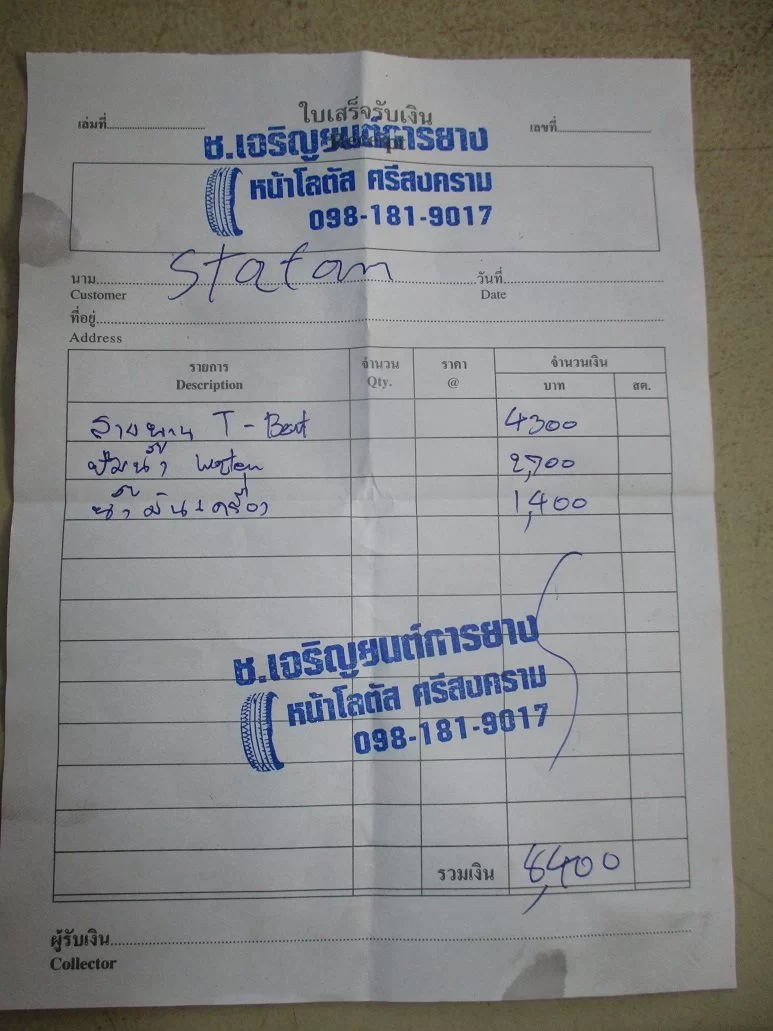 ใบเสร็จรับเงิน
เล่มที่ เลขที่
ช.เจริญยนต์การยาง
หน้าโลตัส ศรีสงคราม
098-181-9017
นาม statan วันที่
Customer Date
ที่อยู่
Address
รายการ จำนวน ราคา จำนวนเงิน
Description Qty. @ บาท สต.
สายพาน T - 4300
ปั๊มน้ำ 2,700
น้ำมันเครื่อง 1,400
ช.เจริญยนต์การยาง
หน้าโลตัส ศรีสงคราม
098-181-9017
รวมเงิน 8,400
ผู้รับเงิน
Collector